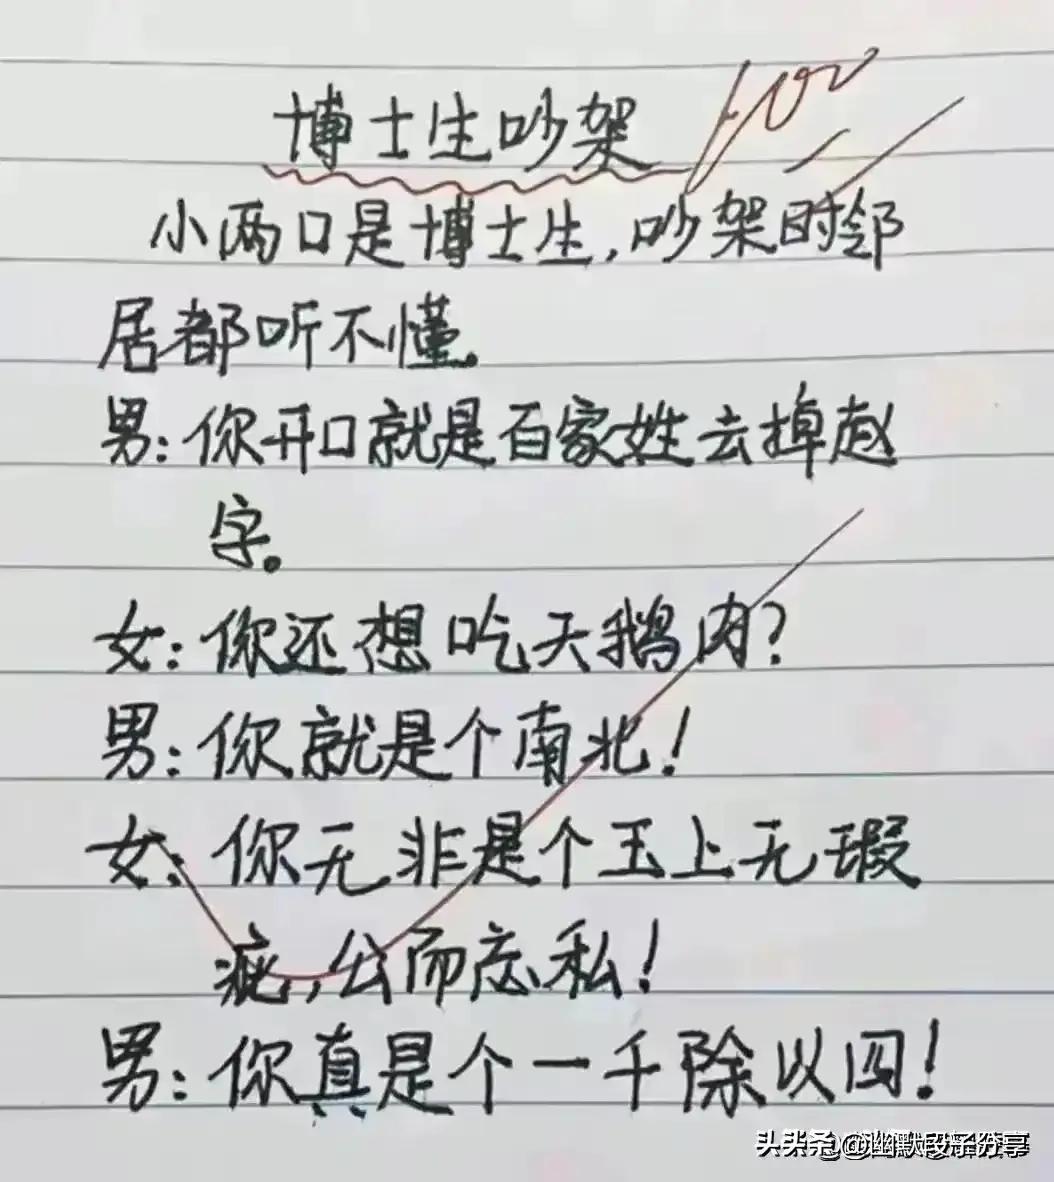 博士生吵架
100
小两口是博士生,吵架时邻
居都听不懂。
男:你开口就是百家姓去掉赵
字。
女:你还想吃天鹅肉?
男:你就是个南北!
女:你无非是个玉上无瑕
疵,公而忘私!
男:你真是个一千除以四!
头条 @幽默段子分享